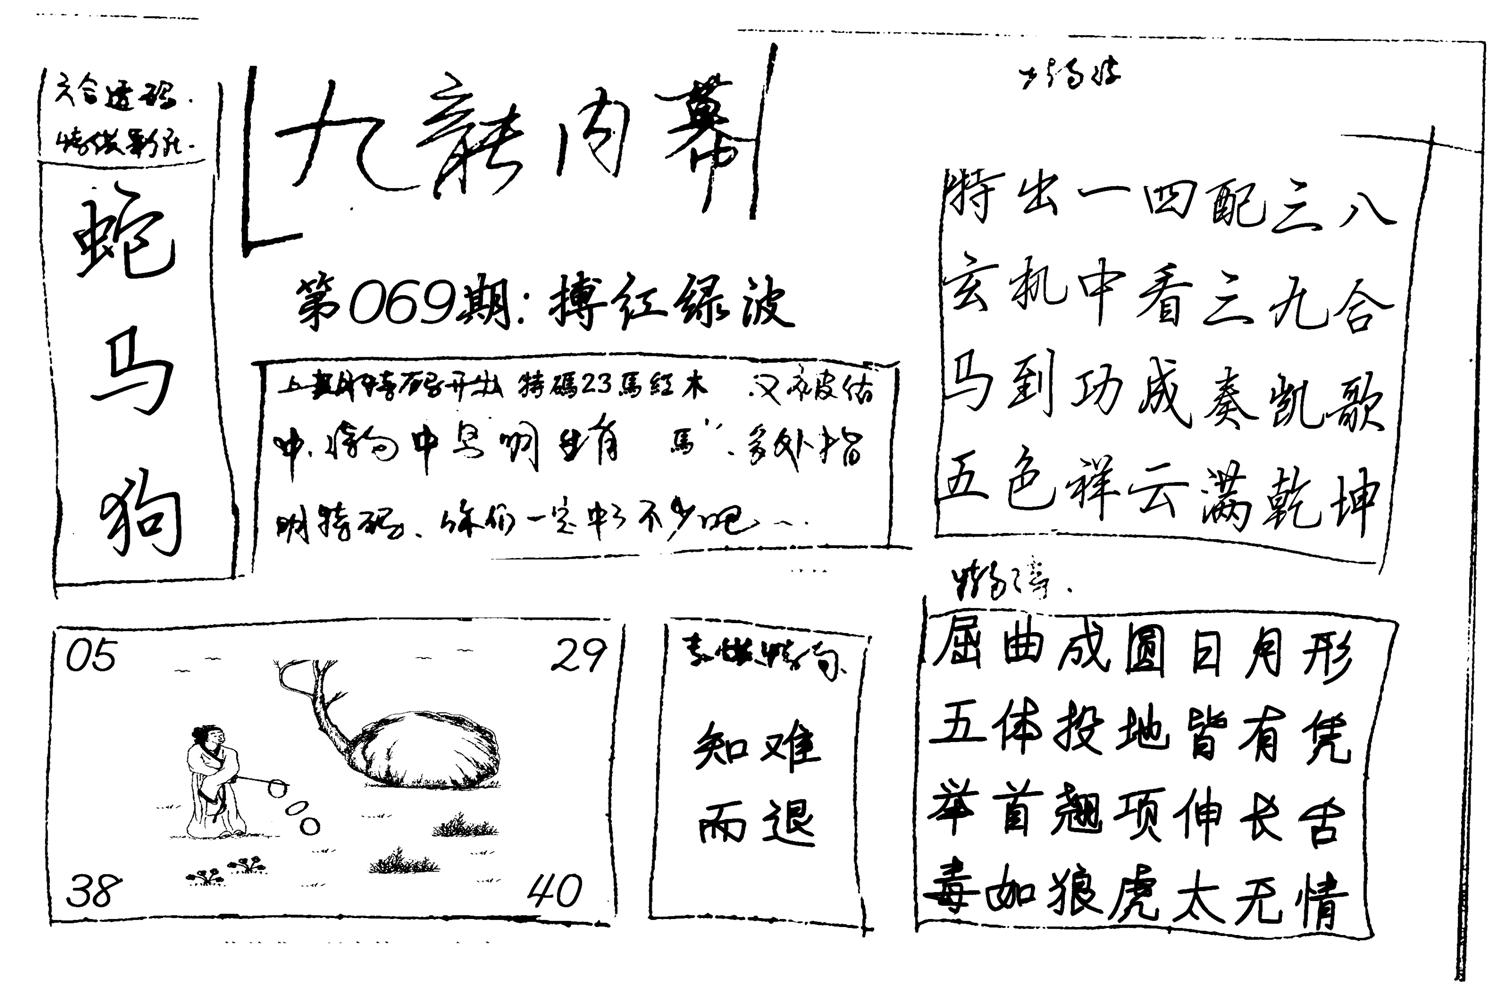 六合透码.
九龍内幕
蛇
马
狗
第069期:搏红绿波
上期特码开出 特碼23馬紅木 又被估
中.特 中 明 生肖 馬"
明特码、你们一定中了不少吧
特出一四配三八
玄机中看三九合
马到功成奏凯歌
五色祥云满乾坤
05
29
38
40
知难
而退
屈曲成圆日月形
五体投地皆有凭
举首翘项伸长舌
毒如狼虎太无情